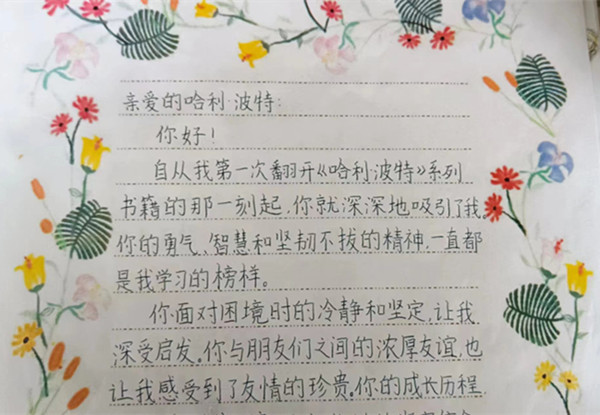 亲爱的哈利·波特:
你好!
自从我第一次翻开《哈利·波特》系列
书籍的那一刻起,你就深深地吸引了我。
你的勇气、智慧和坚韧不拔的精神,一直都
是我学习的榜样。
你面对困境时的冷静和坚定,让我
深受启发。你与朋友们之间的浓厚友谊,也
让我感受到了友情的珍贵。你的成长历程,